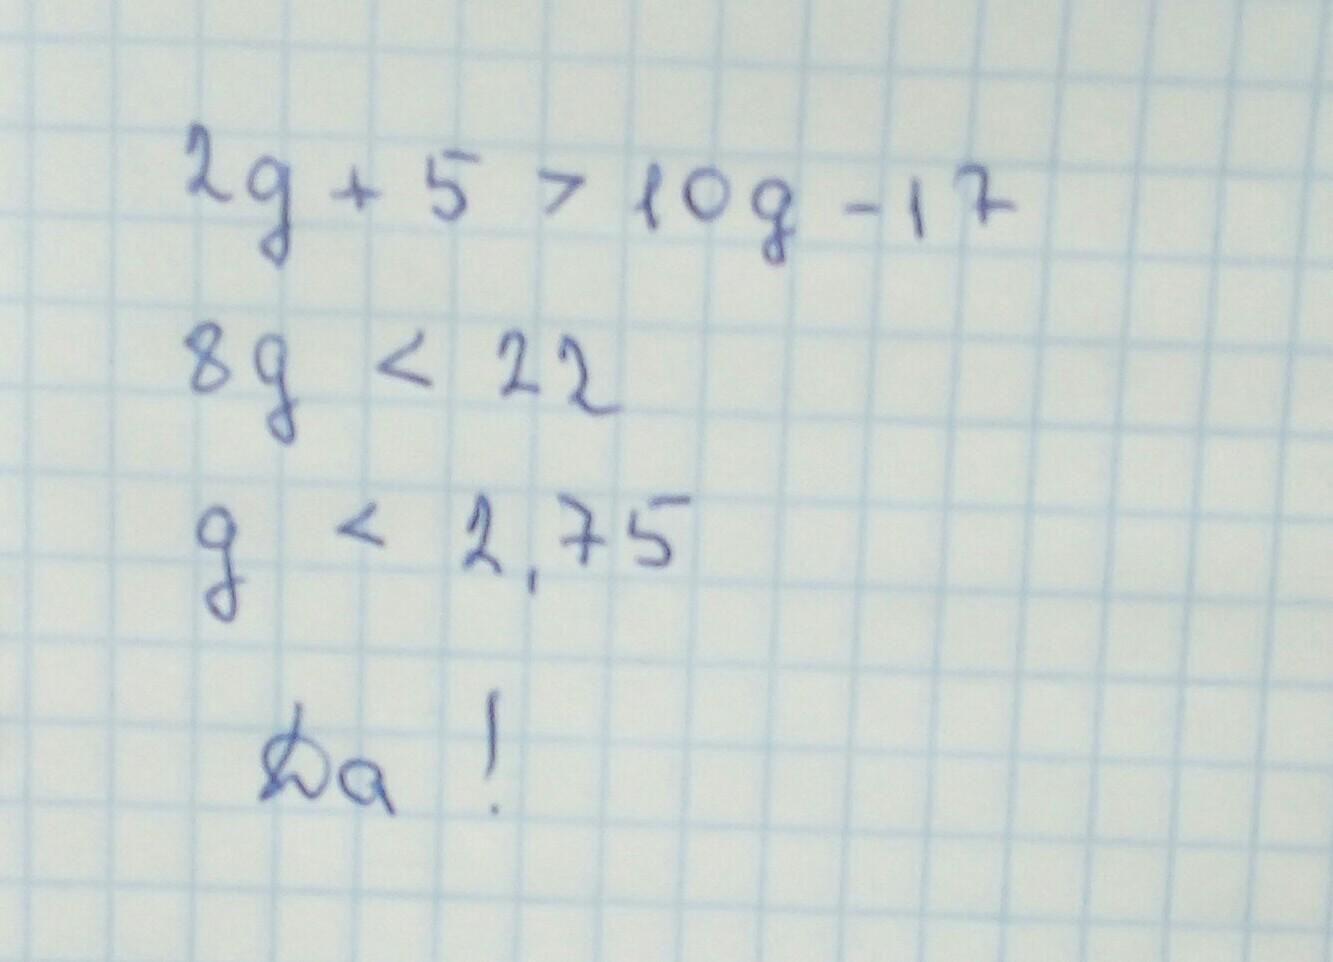 2g + 5 > 10g - 17
8g < 22
g < 2,75
Да !